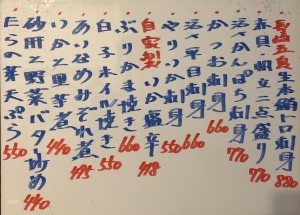 長崎五島生本鮪トロ刺身 880
赤貝帆立二点盛り 770
活〆かんぱち刺身 770
活〆平目刺身 660
かつお刺身 660
やりいか刺身 550
自家製いか塩辛 418
ぶりかま焼き 660
白子ホイル焼き 550
あいなめみぞれ煮 495
いかと里芋煮 440
砂肝と野菜バター炒め 440
たらの芽天ぷら 550